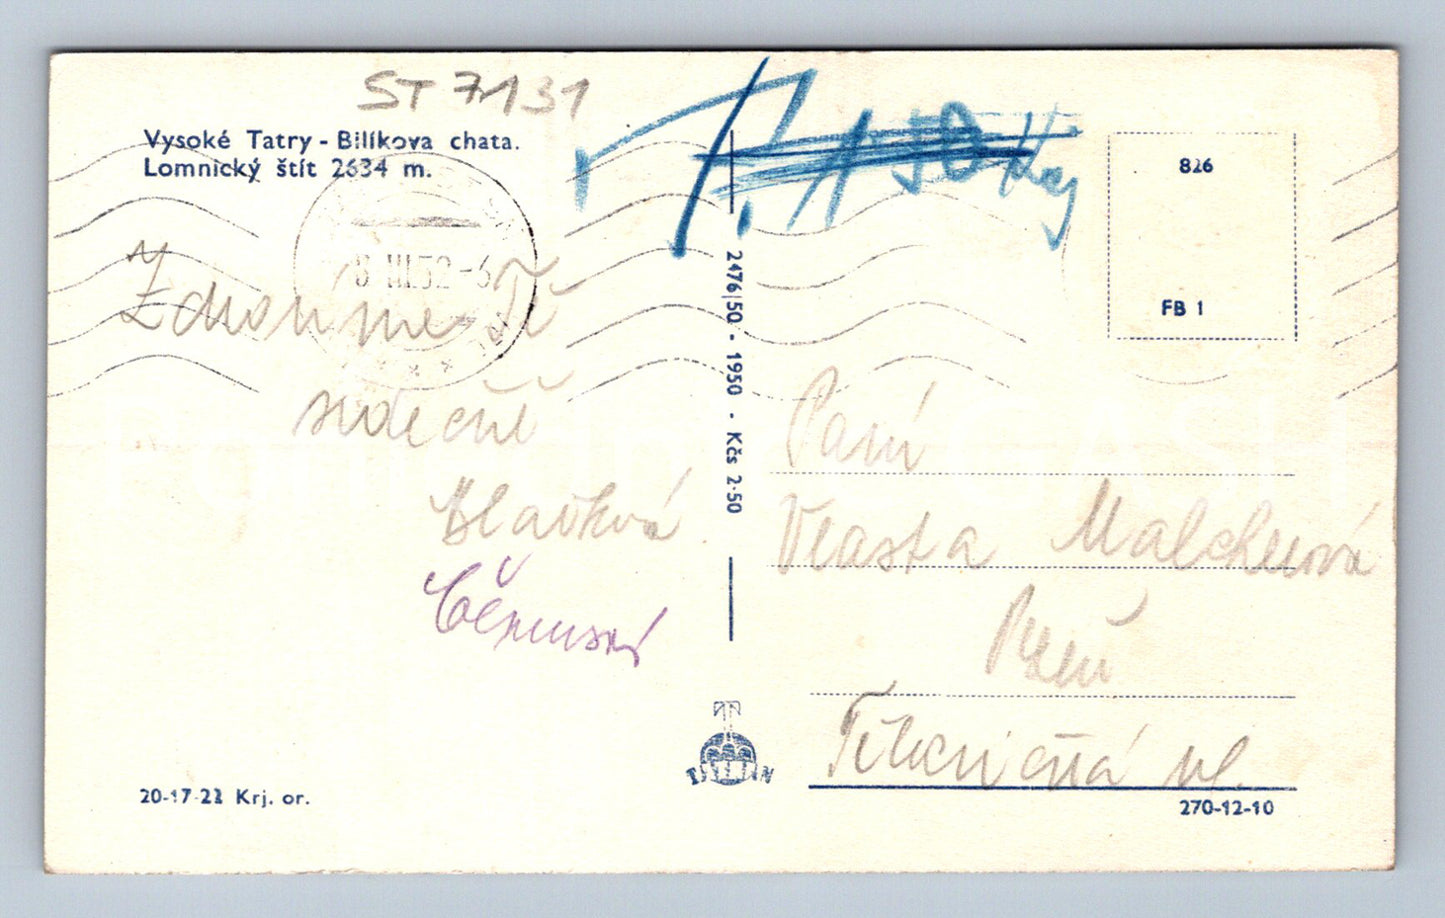 ST 7131
Vysoké Tatry - Bilíkova chata.
Lomnický štít 2634 m.
T. 1·50 Kčs
826
FB 1
8 III.52-6
2476/50 · 1950 · Kčs 2·50
Zdravíme Tě
srdečně
Hlavková
Paní
Vlasta
Plzeň
ul.
TATRAN
20-17-22 Krj. or.
270-12-10